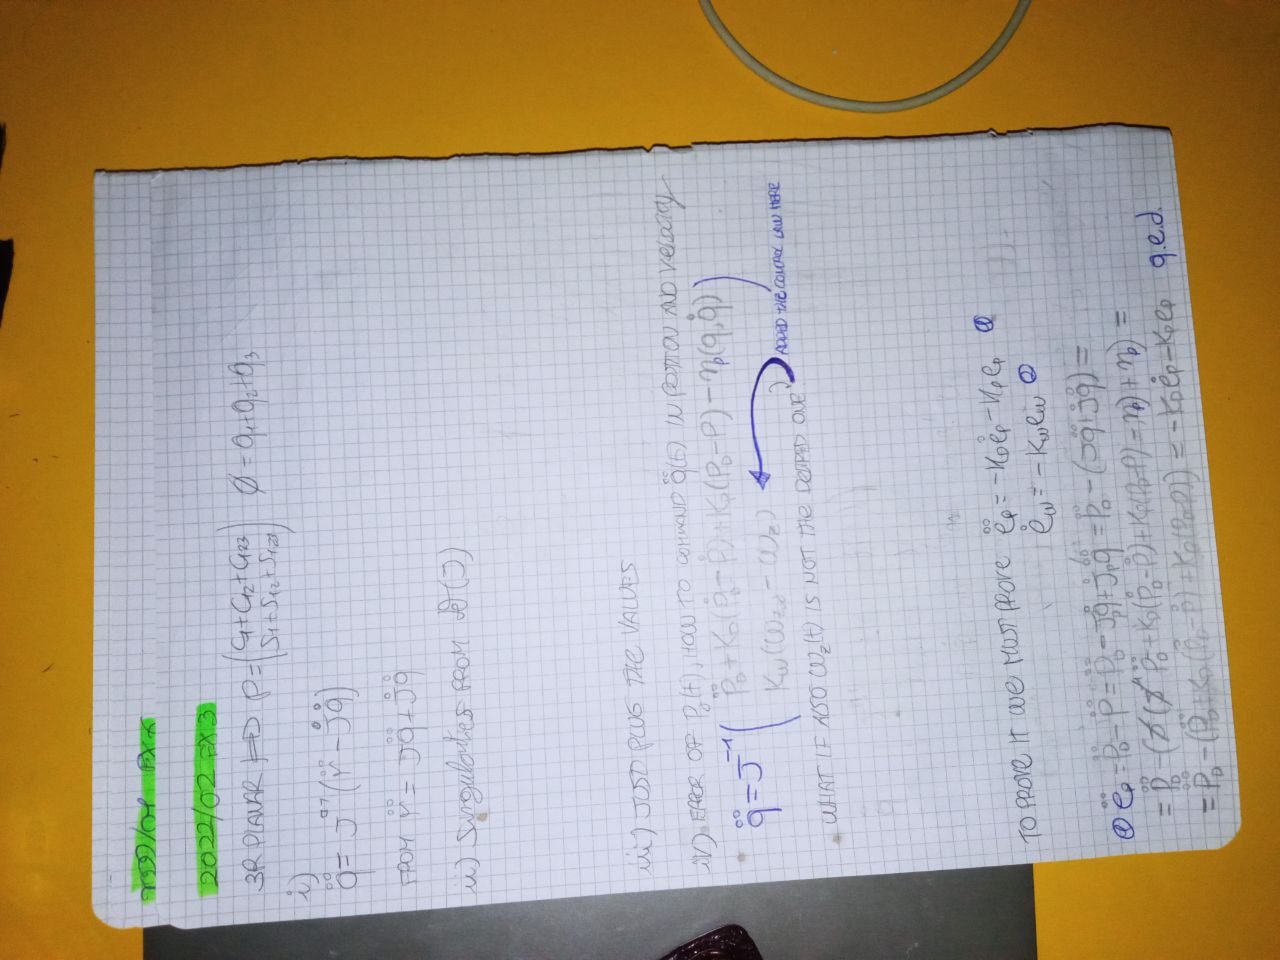 2022/02 EX 3
3R PLANAR ⟼ P = (C1+C12+C123
S1+S12+S123) Ø = q1+q2+q3
i)
q̈ = J⁻¹(r̈ - J̇q̇)
FROM r̈ = Jq̈ + J̇q̇
ii) Singularities FROM Det(J)
iii) JUST PLUG THE VALUES
iv) ERROR OF PD(t), HOW TO COMMAND q̈(t) IN POSITION AND VELOCITY
q̈ = J⁻¹ ( P̈D + KD(ṖD - Ṗ) + KP(PD - P) - ηp(q,q̇)
Kω(ωz,d - ωz) )
ADDED THE CONTROL LAW HERE
• WHAT IF ALSO ωz(t) IS NOT THE DESIRED ONE?
TO PROVE IT WE MUST PROVE ëP = -KDėP - KPeP ①
ėω = -Kωeω ②
① ëP = P̈D - P̈ = P̈D - Jpq̈ + J̇pq̇ = P̈D - (Jq̈ + J̇q̇) =
= P̈D - (J(J⁻¹ P̈D + KD(ṖD - Ṗ) + KP(PD - P) - ηp) + ηp) =
= P̈D - (P̈D + KD(ṖD - Ṗ) + KP(PD - P)) = -KDėP - KPeP q.e.d.